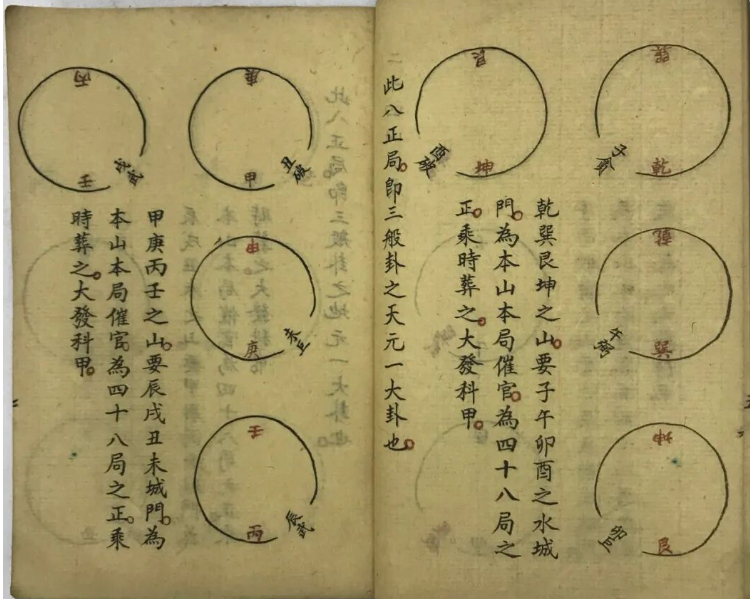 巽
乾
子貪
乾
巽
午弼
坤
艮
卯巨
艮
坤
酉破
乾巽艮坤之山要子午卯酉之水城
門為本山本局催官為四十八局之
正乘時葬之大發科甲
此八正局即三般卦之天元一大卦也
庚
甲
丑破
甲
庚
未巨
壬
丙
辰武
丙
壬
戌武
甲庚丙壬之山要辰戌丑未城門為
本山本局催官為四十八局之正乘
時葬之大發科甲